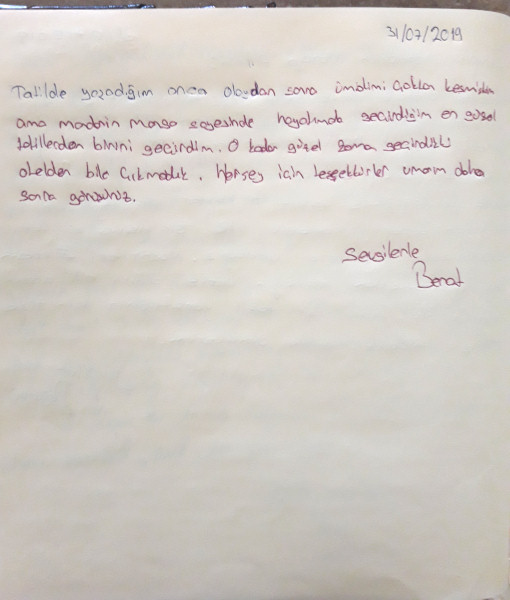 31/07/2019
Tatilde yaşadığım onca olaydan sonra ümidimi çoktan kesmiştim
ama sayesinde hayatımda geçirdiğim en güzel
tatillerden birini geçirdim. O kadar güzel zaman geçirdik ki
otelden bile çıkmadık. Herşey için teşekkürler umarım daha
sonra görüşürüz.
Sevgilerle
Berat